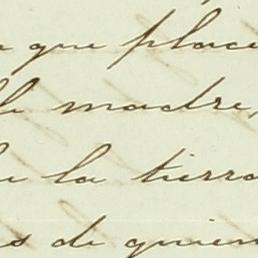 que place
madre,
la tierra
de quien